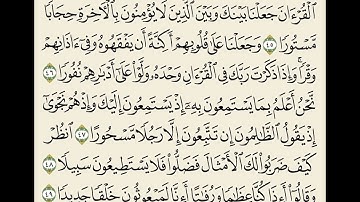 ٱلْقُرْءَانَ جَعَلْنَا بَيْنَكَ وَبَيْنَ ٱلَّذِينَ لَا يُؤْمِنُونَ بِٱلْءَاخِرَةِ حِجَابًا
مَّسْتُورًا ٤٥ وَجَعَلْنَا عَلَىٰ قُلُوبِهِمْ أَكِنَّةً أَن يَفْقَهُوهُ وَفِىٓ ءَاذَانِهِمْ
وَقْرًا وَإِذَا ذَكَرْتَ رَبَّكَ فِى ٱلْقُرْءَانِ وَحْدَهُۥ وَلَّوْا۟ عَلَىٰٓ أَدْبَٰرِهِمْ نُفُورًا ٤٦
نَّحْنُ أَعْلَمُ بِمَا يَسْتَمِعُونَ بِهِۦٓ إِذْ يَسْتَمِعُونَ إِلَيْكَ وَإِذْ هُمْ نَجْوَىٰٓ
إِذْ يَقُولُ ٱلظَّٰلِمُونَ إِن تَتَّبِعُونَ إِلَّا رَجُلًا مَّسْحُورًا ٤٧ ٱنظُرْ
كَيْفَ ضَرَبُوا۟ لَكَ ٱلْأَمْثَالَ فَضَلُّوا۟ فَلَا يَسْتَطِيعُونَ سَبِيلًا
٤٨ وَقَالُوٓا۟ أَءِذَا كُنَّا عِظَٰمًا وَرُفَٰتًا أَءِنَّا لَمَبْعُوثُونَ خَلْقًا جَدِيدًا ٤٩